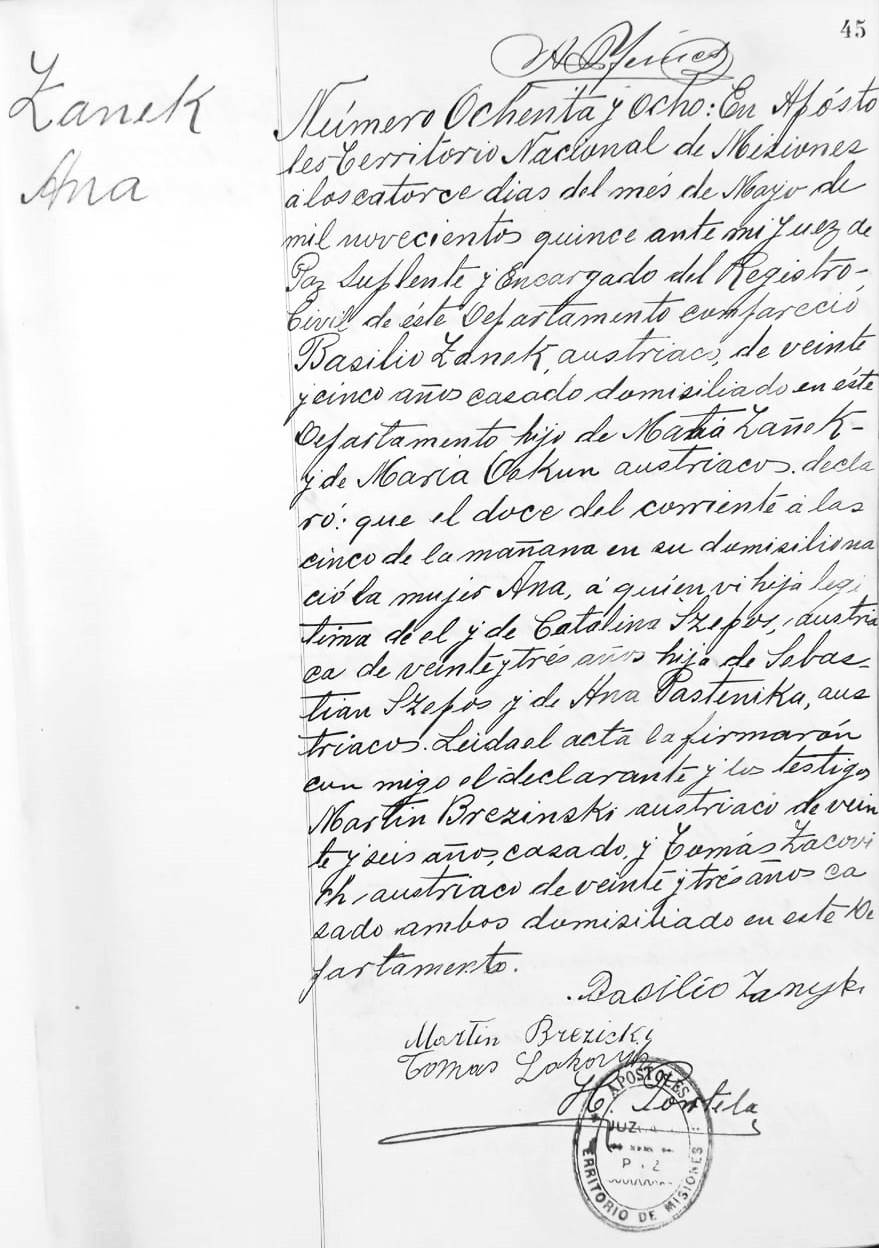 45
Zanek
Ana
Número Ochenta y ocho: En Apósto
les Territorio Nacional de Misiones
a los catorce dias del més de Mayo de
mil novecientos quince ante mi Juez de
Paz Suplente y Encargado del Registro-
Civil de éste Departamento compareció
Basilio Zanek, austriaco, de veinte
y cinco años casado domisiliado en éste
Departamento hijo de Zañek-
y de Maria austriacos. decla
ró: que el doce del corriente á las
cinco de la mañana en su domisilio na
ció la mujer Ana, á quien vi hija legi
tima de el y de Catalina Szepos, austria
ca de veinte y trés años hija de Sebas-
tian Szepos y de Ana Pastenika, aus
triacos. Leida el acta la firmarón
con migo el declarante y los testigos
Martin Brezinski austriaco de vein
te y seis años, casado, y Tomás Zacovi
ch, austriaco de veinte y trés años ca
sado ambos domisiliado en este De
partamento.
Basilio Zanyk
Martin Brezicky
Tomas
H. Portela
APOSTOLES
JUZ
P
TERRITORIO DE MISIONES